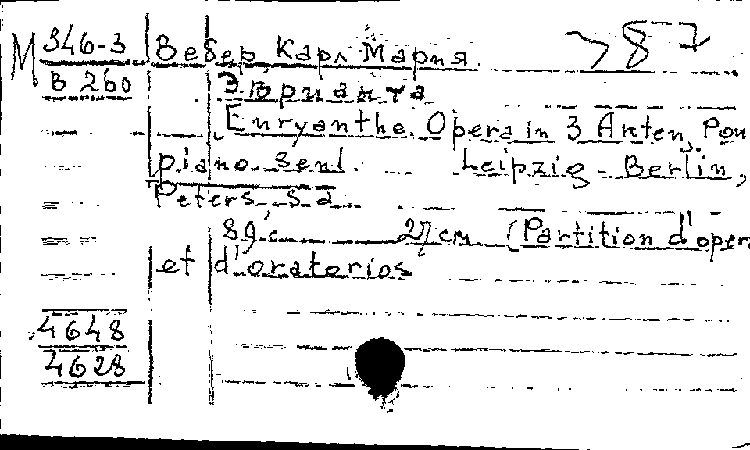 М 346-3 Вебер Карл Мария. 787
В 260 Эврианта
[Euryanthe. Opera in 3 Akten, Pour
piano seul. Leipzig - Berlin,
Peters. S. a.
89 с. 27 см. (Partition d'opera
et d'oratorios
4648
4628